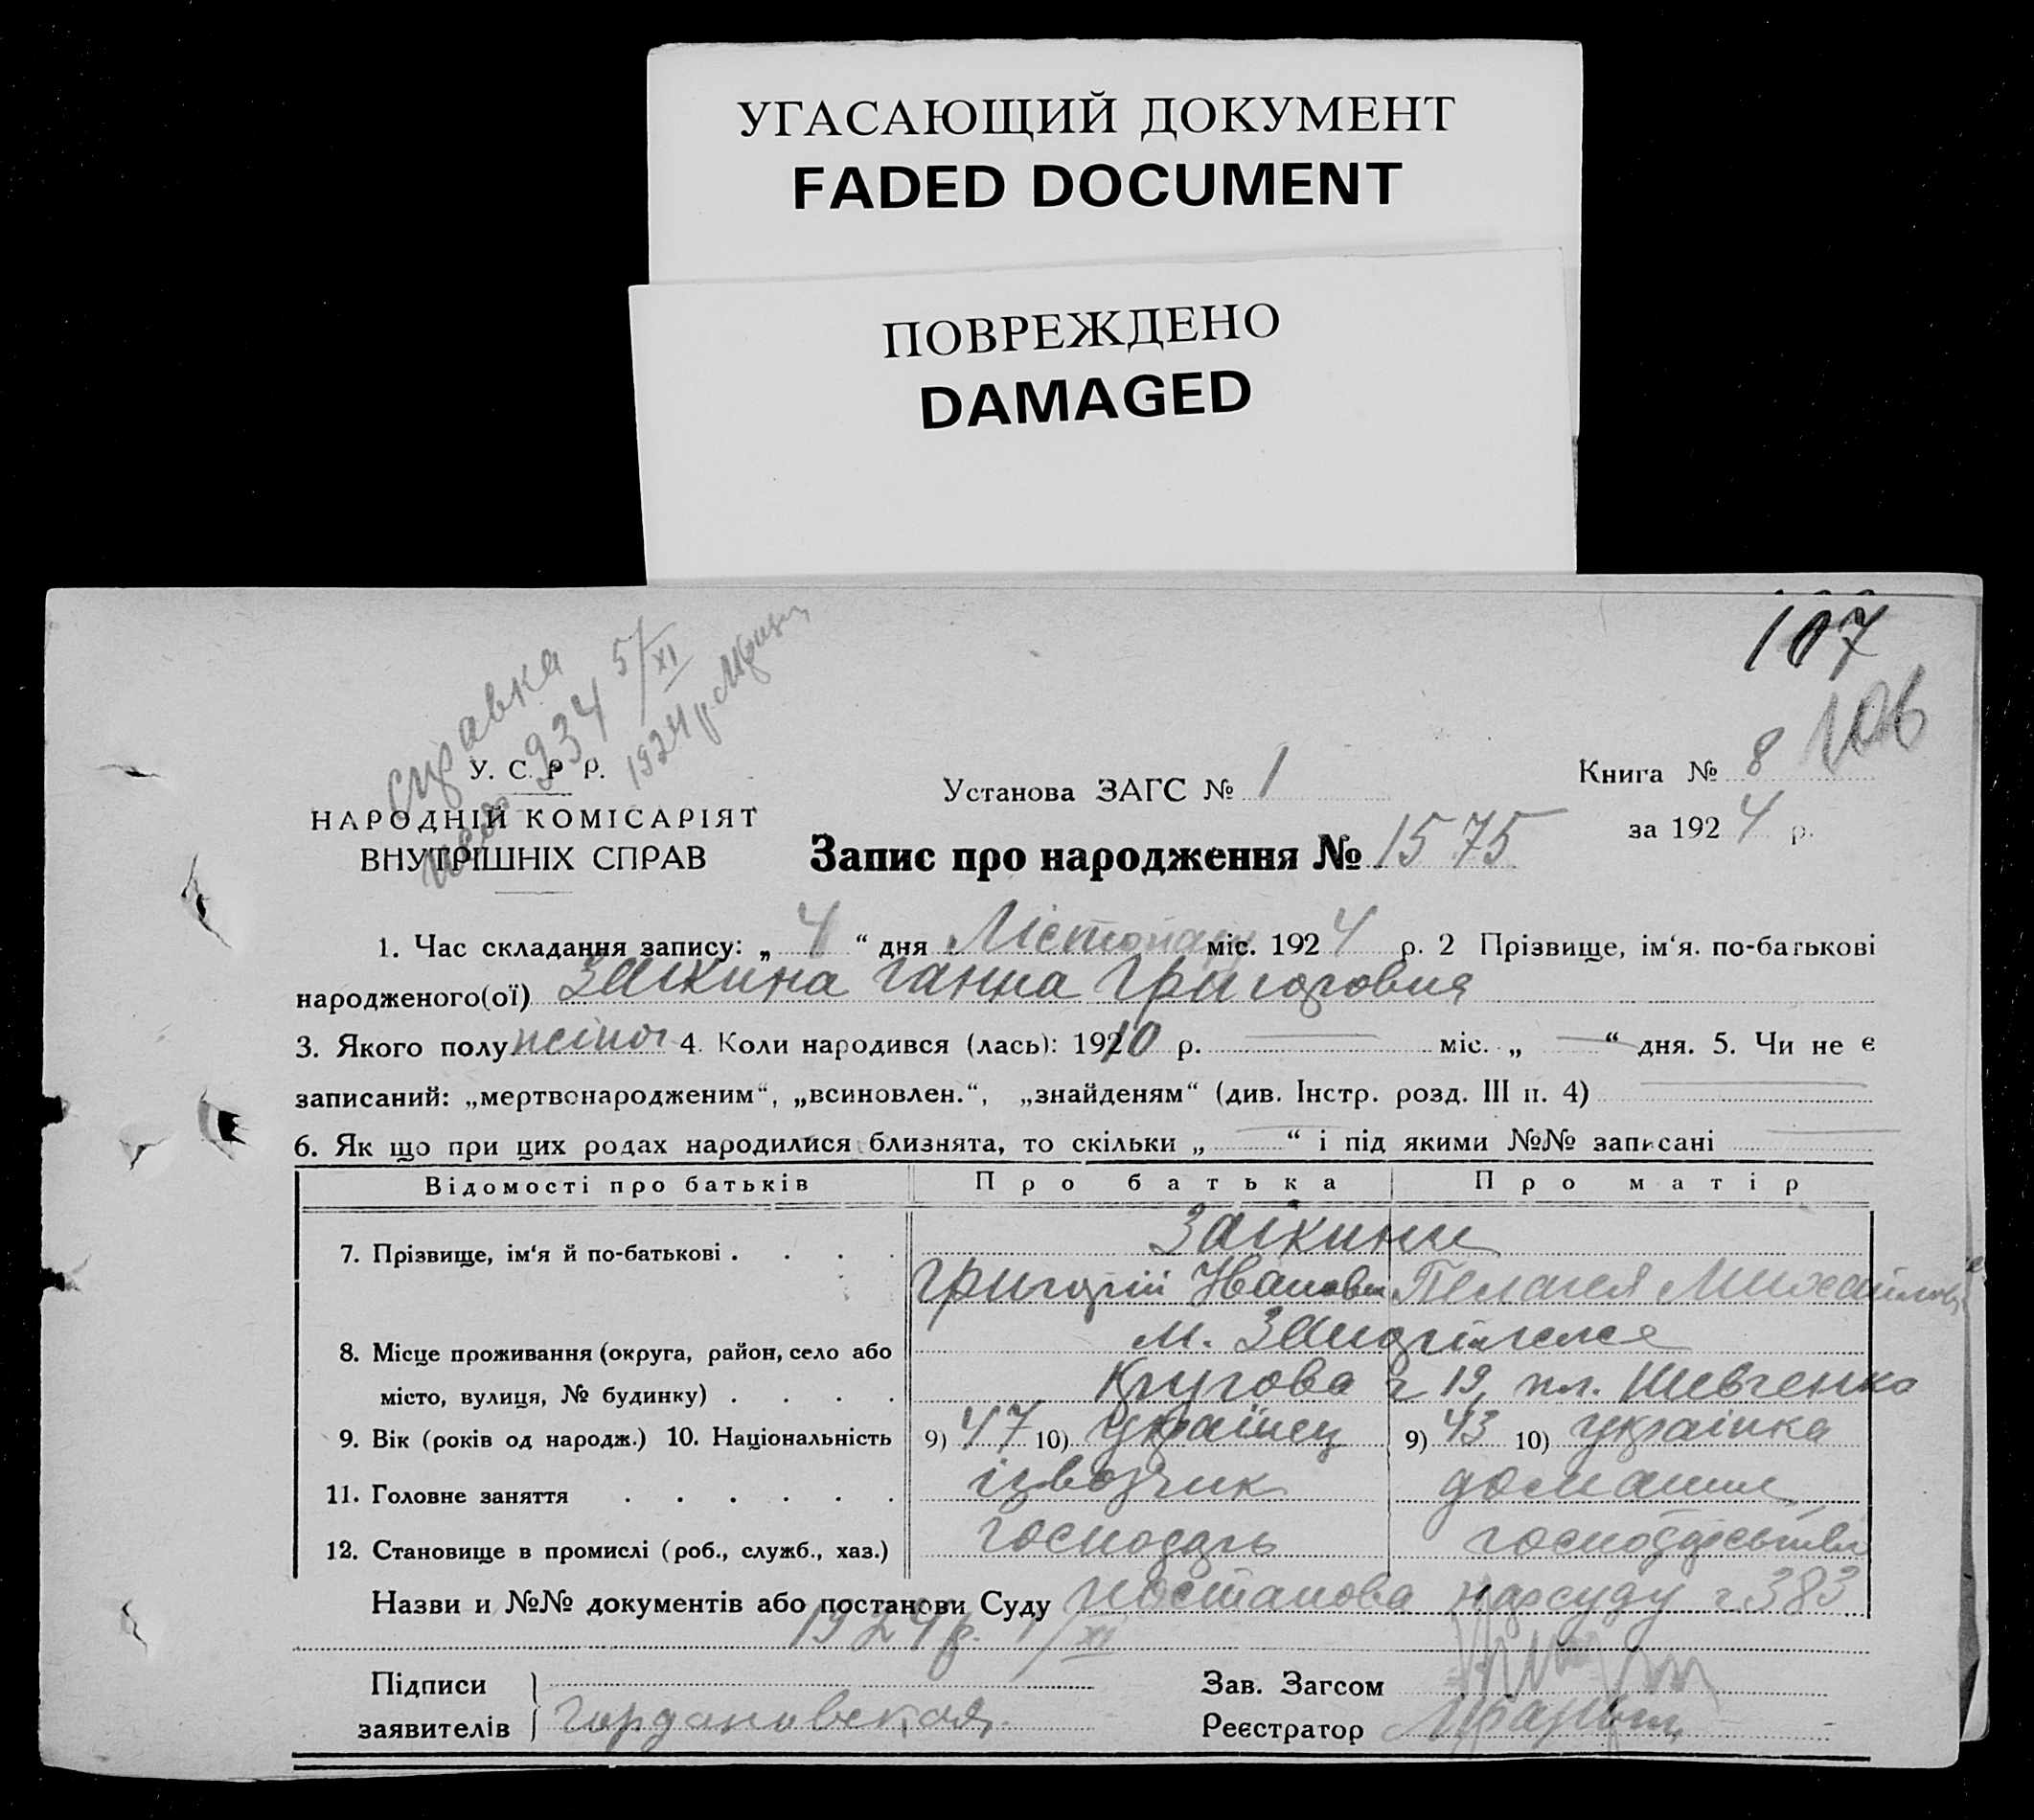 УГАСАЮЩИЙ ДОКУМЕНТ
FADED DOCUMENT
ПОВРЕЖДЕНО
DAMAGED
107
106
справка
934 5/XI
1924 р.
У. С. Р. Р.
НАРОДНІЙ КОМІСАРІЯТ
ВНУТРІШНІХ СПРАВ
Установа ЗАГС № 1
Книга № 8
за 1924 р.
Запис про народження № 1575
1. Час складання запису: „ 4 “ дня Лістопаду міс. 1924 р. 2 Прізвище, ім‘я. по-батькові
народженого(ої) Заікина Ганна Григоровна
3. Якого полу жіноч 4. Коли народився (лась): 1910 р. — міс. „ — “ дня. 5. Чи не є
записаний: „мертвонародженим“, „всиновлен.“, „знайденям“ (див. Інстр. розд. III п. 4) —
6. Як що при цих родах народилися близнята, то скільки „ — “ і під якими №№ записані —
Відомості про батьків Про батька Про матір
7. Прізвище, ім‘я й по-батькові . . . . Заікини
Григорій Іванович Пелагея Михайлов
8. Місце проживання (округа, район, село або м. Запоріжжє
місто, вулиця, № будинку) . . . . Кругова 19, пл. Шевченко
9. Вік (років од народж.) 10. Національність 9) 47 10) українец 9) 43 10) українка
11. Головне заняття . . . . . . ізвозчик домашнє
12. Становище в промислі (роб., служб., хаз.) господарь господарство
Назви и №№ документів або постанови Суду постанова нарсуду ч. 383
1924 р. 1/XI
Підписи
заявителів Гордановская
Зав. Загсом
Реєстратор